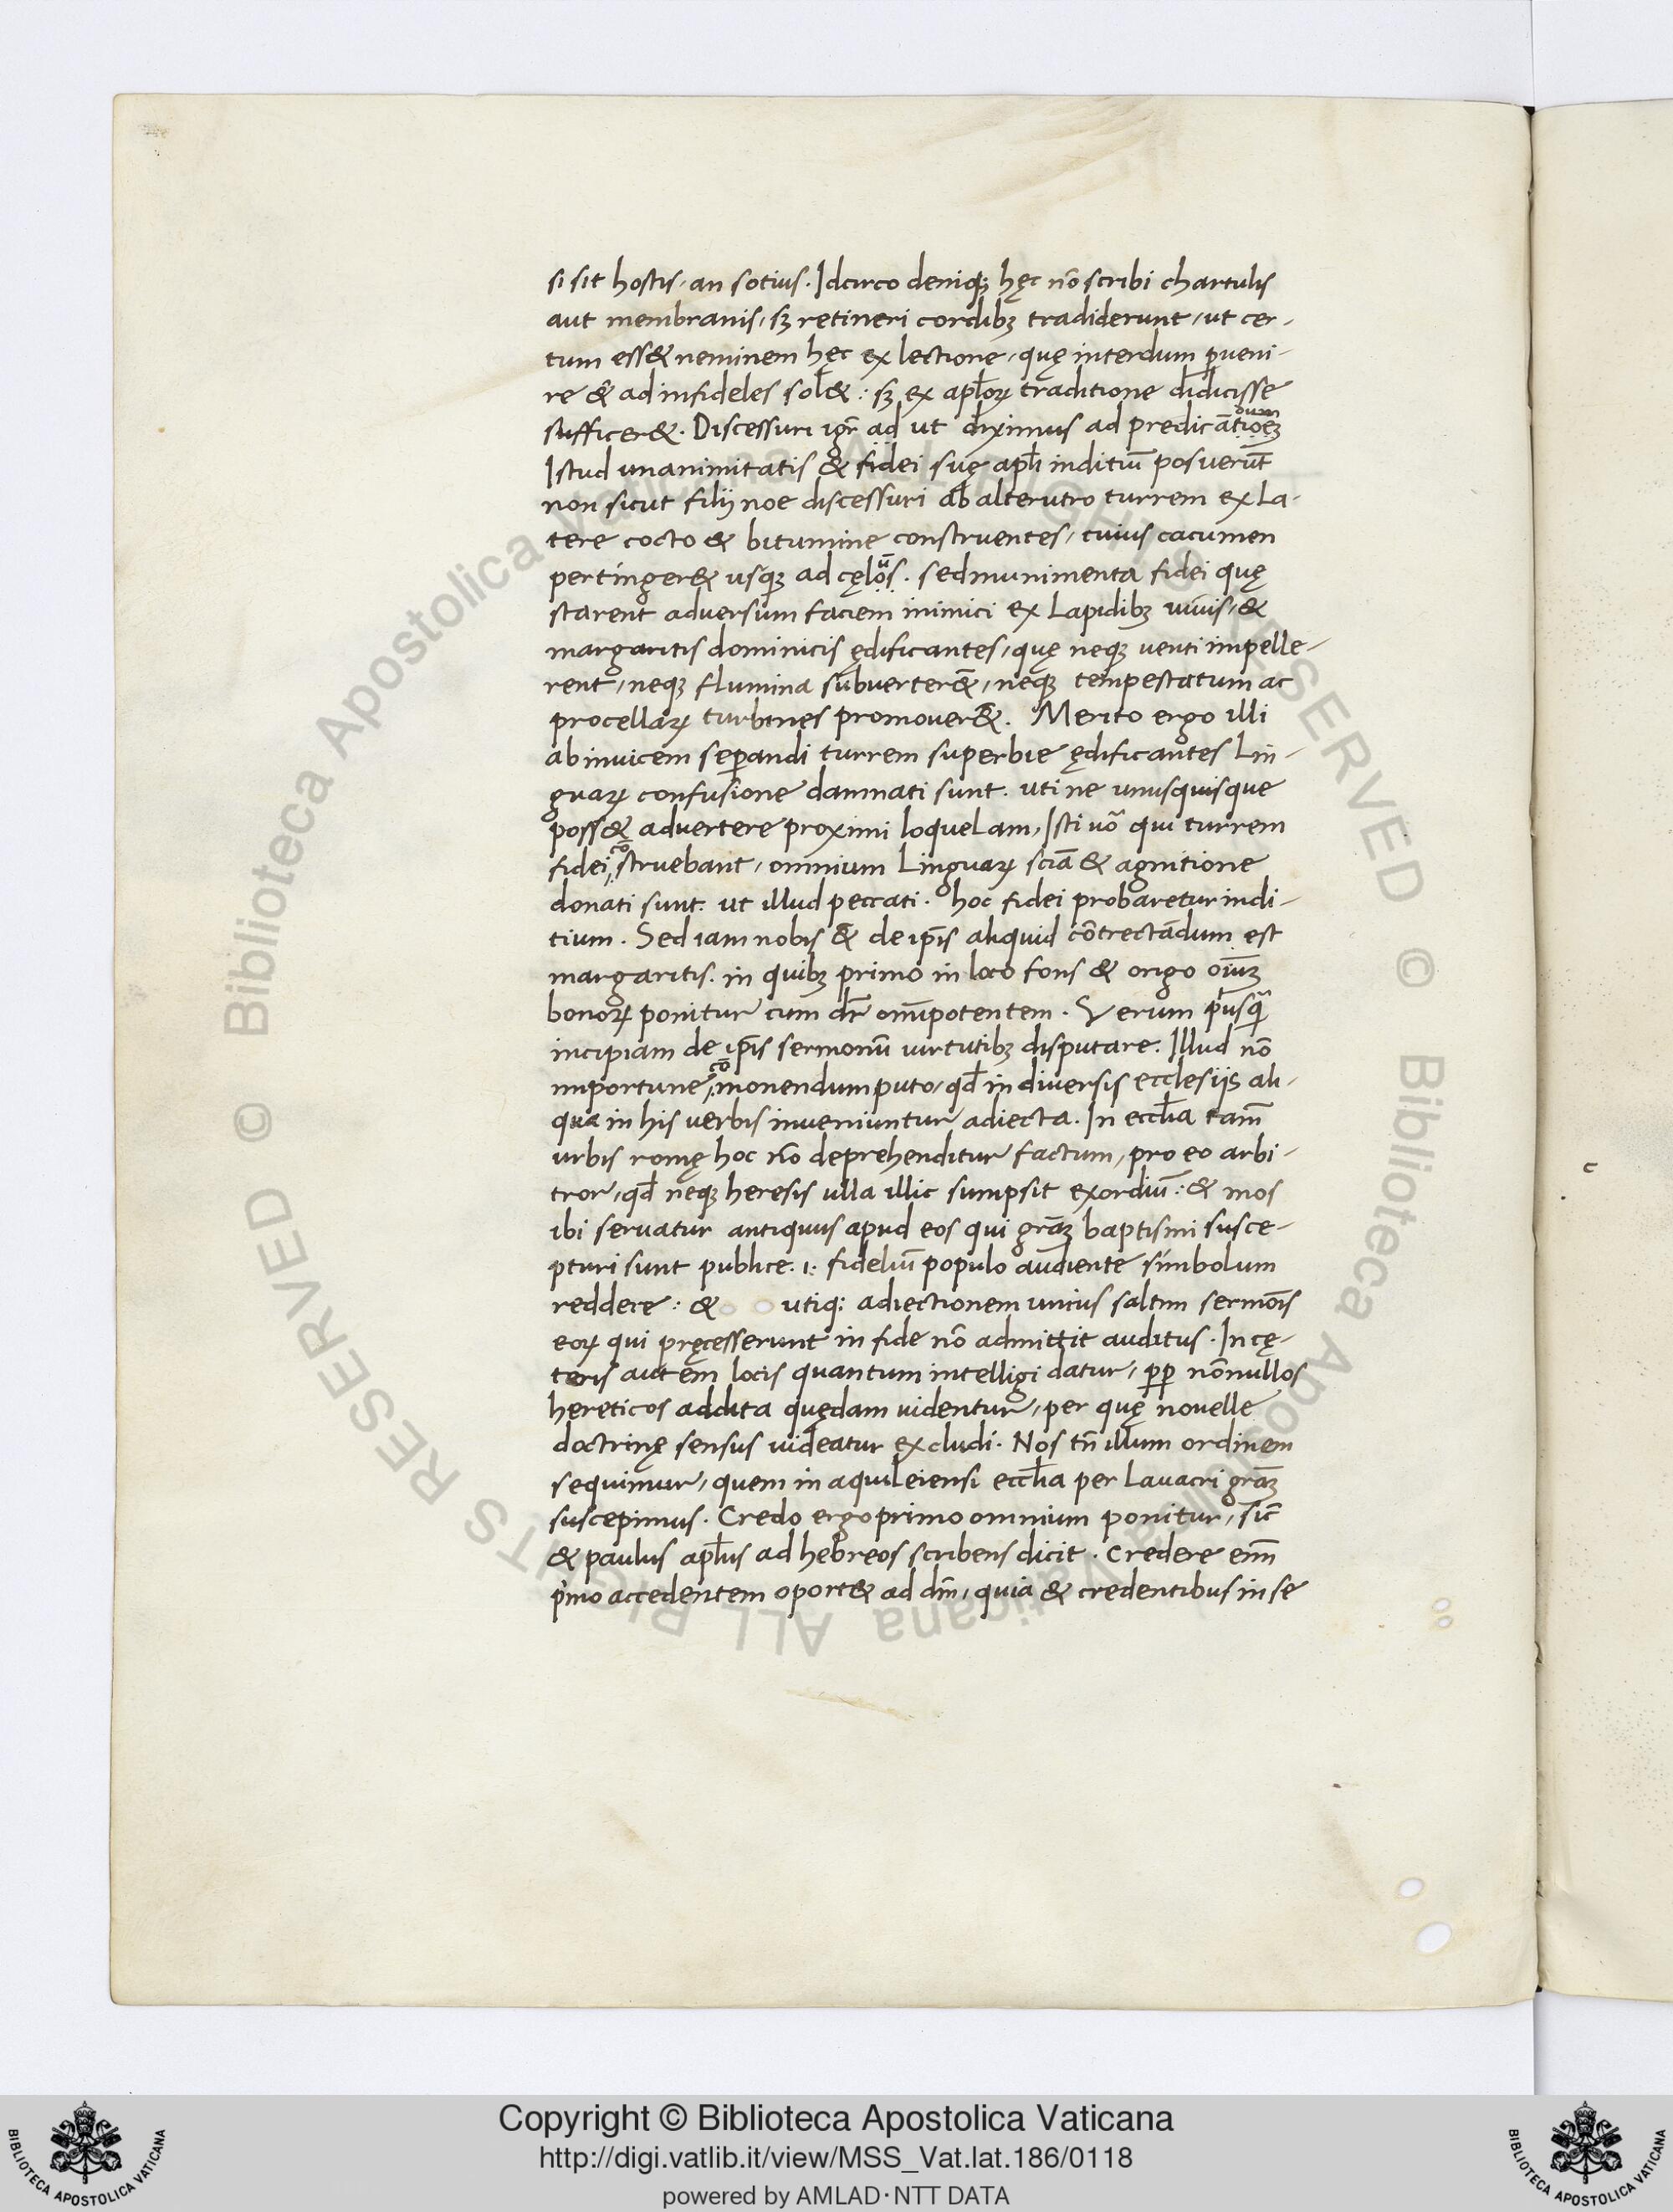 si sit hostis, an sotius. Idcirco deniqꝫ hęc nō scribi chartulis
aut membranis, sꝫ retineri cordibꝫ tradiderunt, ut cer-
tum ess& neminem hęc ex lectione, quę interdum ꝑueni-
re & ad infideles sol&: sꝫ ex apłoꝝ traditione didicisse
sufficer&. Discessuri igr̄ ad ut diximus ad predicātioēꝫ
dum
Istud unanimitatis & fidei suę apłi inditiū posuerūt
non sicut filij noe discessuri ab alterutro turrem ex La-
tere cocto & bitumine construentes, cuius cacumen
pertinger& usqꝫ ad cęlos. sed munimenta fidei quę
ū
starent adversum faciem inimici ex Lapidibꝫ vivis, &
margaritis dominicis ędificantes, quę neqꝫ venti impelle-
rent, neqꝫ flumina subverter&̄, neqꝫ tempestatum ac
procellaꝝ turbines promover&̄. Merito ergo illi
ab invicem seꝑandi turrem superbie ędificantes Lin-
guaꝝ confusione damnati sunt. uti ne unusquisque
poss& advertere proximi loquelam, Isti vō qui turrem
fidei struebant, omnium Linguaꝝ sciā & agnitione
cō
donati sunt. ut illud peccati. hoc fidei probaretur indi-
tium. Sed iam nobis & de ip̄is aliquid cōtrectādum est
margaritis. in quibꝫ primo in loco fons & origo oīuꝫ
bonoꝝ ponitur cum dr̄ omīpotentem. Verum pᷣusꝗ̄
incipiam de ip̄is sermonū virtutibꝫ disputare. Illud nō
importune monendum puto, qd̄ in diversis ecclesiis ali-
cō
qua in his verbis inveniuntur adiecta. In eccłia tam̄
urbis romę hoc nō deprehenditur factum, pro eo arbi-
tror, qd̄ neqꝫ heresis ulla illic sumpsit exordiū: & mos
ibi servatur antiquus apud eos qui grāꝫ baptismi susce-
pturi sunt publice. i. fidelium populo audiente simbolum
reddere: & utiqꝫ adiectionem unius saltim sermōis
eoꝝ qui pręcesserunt in fide nō admittit auditus. In cę-
teris autem locis quantum intelligi datur, ꝓꝑ nōnullos
hereticos addita quędam videntur, per quę novelle
doctrinę sensus videatur excludi. Nos tn̄ illum ordinem
sequimur, quem in aquileiensi eccłia per Lavacri grāꝫ
suscepimus. Credo ergo primo omnium ponitur, sic̄
& paulus apłus ad hebreos scribens dicit. Credere enī
pᷣmo accedentem oport& ad dm̄, quia & credentibus in se
c
© Biblioteca Apostolica Vaticana ALL RIGHTS RESERVED
© Biblioteca Apostolica Vaticana ALL RIGHTS RESERVED
Copyright © Biblioteca Apostolica Vaticana
http://digi.vatlib.it/view/MSS_Vat.lat.186/0118
powered by AMLAD・NTT DATA
BIBLIOTECA APOSTOLICA VATICANA
BIBLIOTECA APOSTOLICA VATICANA